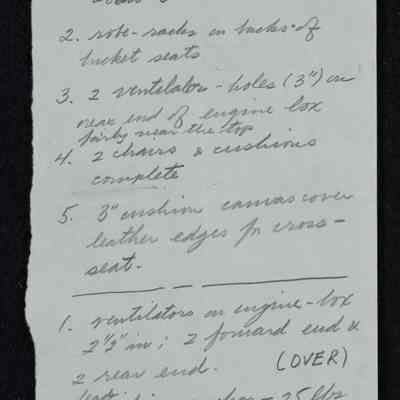 2. robe-racks on backs of
bucket seats
3. 2 ventilator-holes (3") on
rear end of engine box
fairly near the top
4. 2 chairs & cushions
complete
5. 3" cushion canvas cover
leather edges for cross-
seat.
1. ventilators on engine-box
2 forward end &
2 rear end.
(OVER)
25 lbs